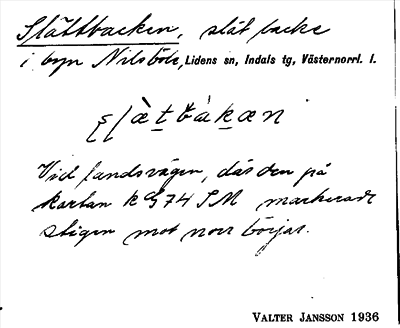 Slättbacken, slät backe
i byn Nilsböle, Lidens sn, Indals tg, Västernorrl. l.
Vid landsvägen, där den på
kartan k G74 SM markerade
stigen mot norr börjar.
VALTER JANSSON 1936